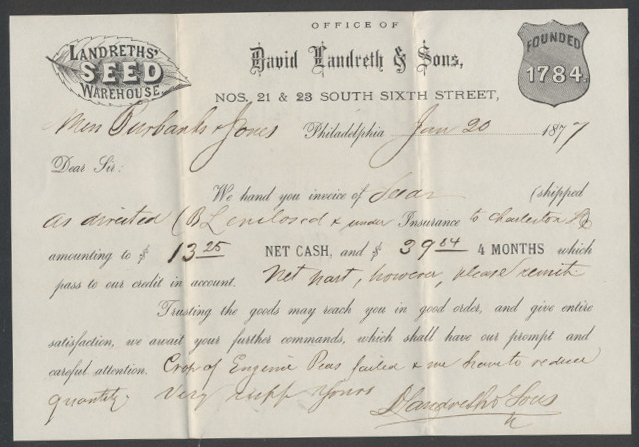 LANDRETHS'
SEED
WAREHOUSE.
OFFICE OF
David Landreth & Sons,
NOS. 21 & 23 SOUTH SIXTH STREET,
FOUNDED
1784.
Mess Burbank & Jones Philadelphia Jan 20 1877
Dear Sir:
We hand you invoice of (shipped
as directed (B L enclosed & under Insurance to Charleston
amounting to $ 13 25 NET CASH, and $ 39 84 4 MONTHS which
pass to our credit in account. Net part, however, please remit.
Trusting the goods may reach you in good order, and give entire
satisfaction, we await your further commands, which shall have our prompt and
careful attention. Crop of Eugenie Peas failed & we have to reduce
quantity. Very Yours
D Landreth & Sons